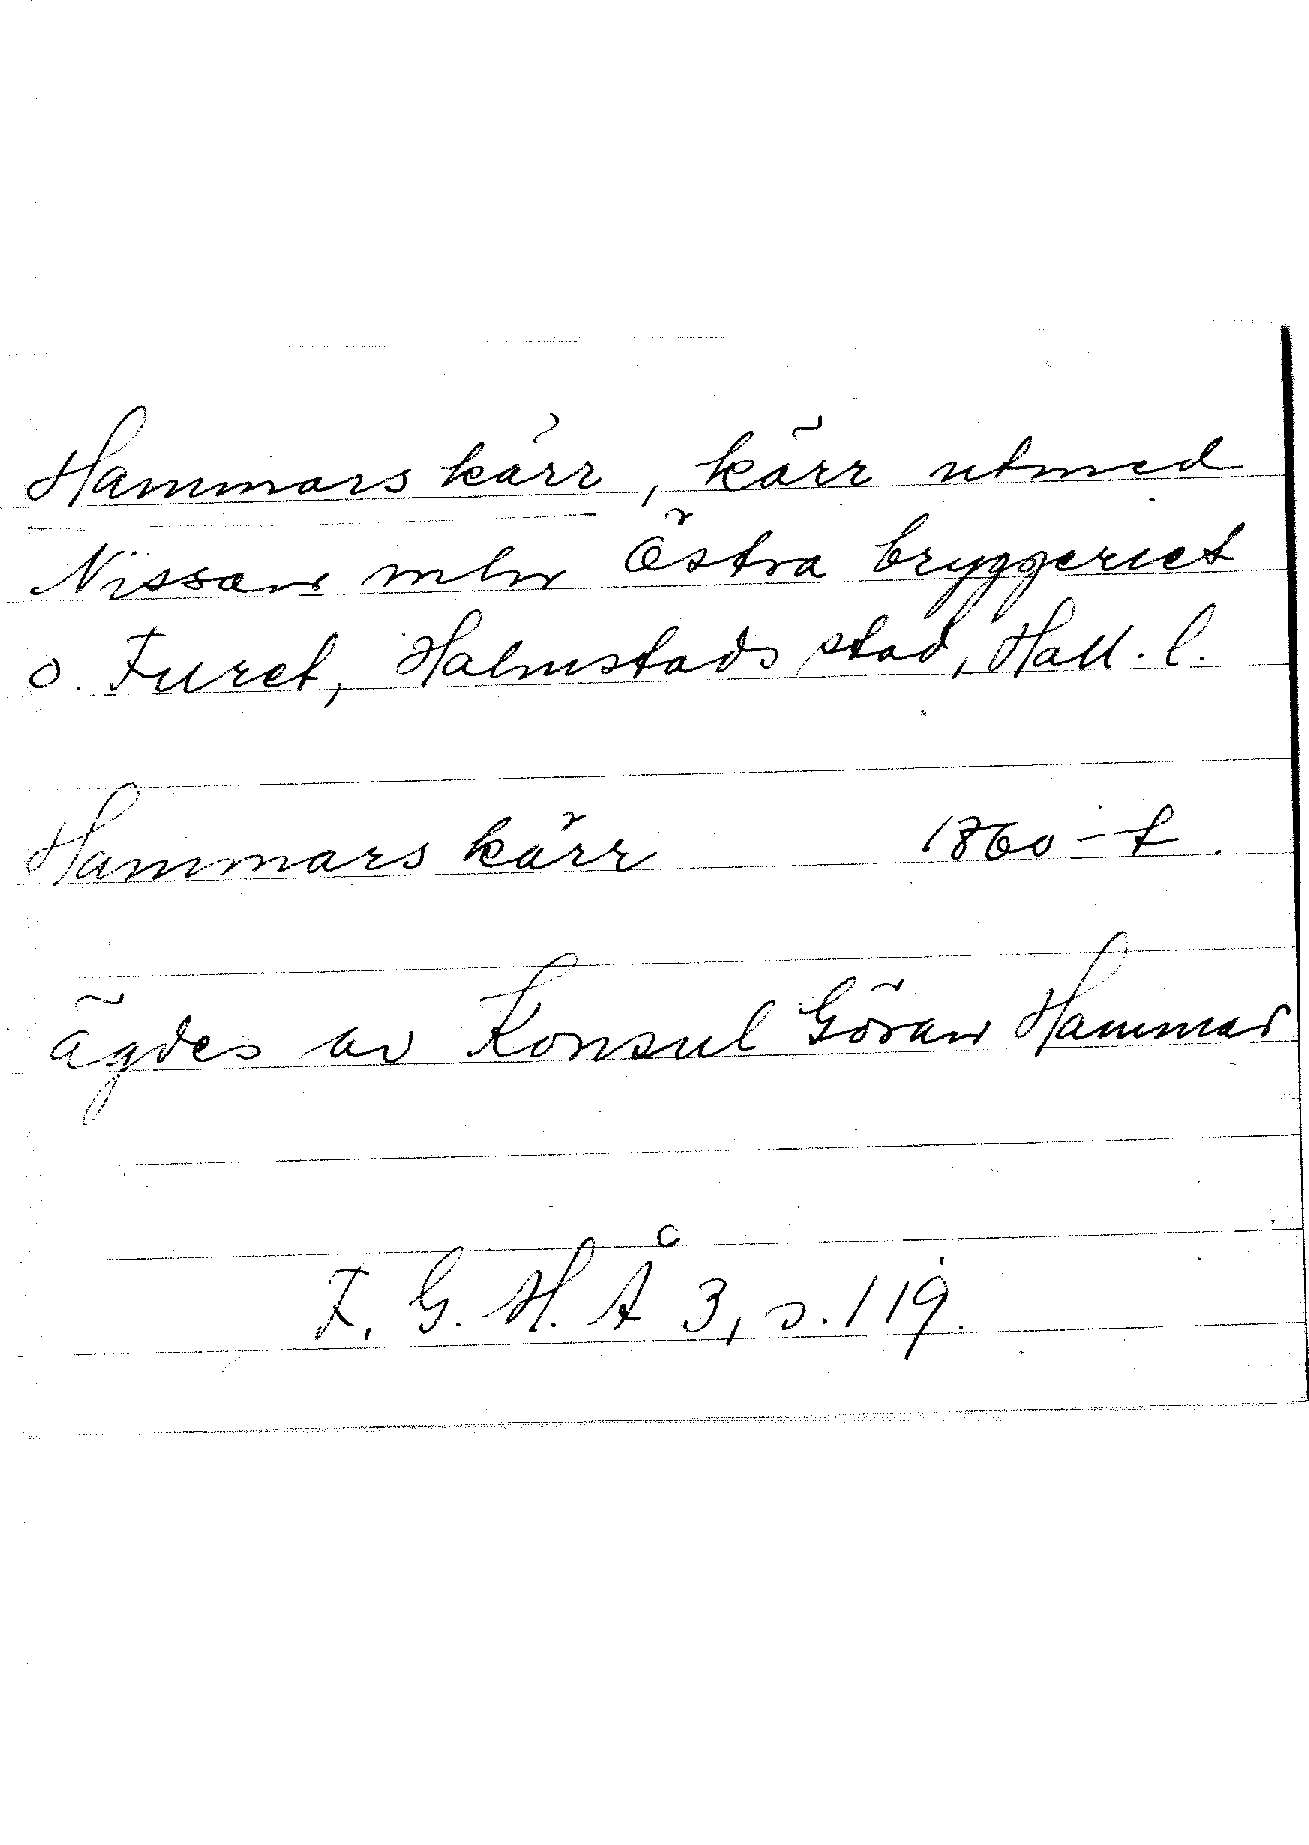 Hammars kärr, kärr utmed
Nissan mln Östra bryggeriet
o. Furet, Halmstads stad, Hall. l.
Hammars kärr 1860-t.
ägdes av Konsul Göran Hammar
F. G. H. Å 3, s. 119.